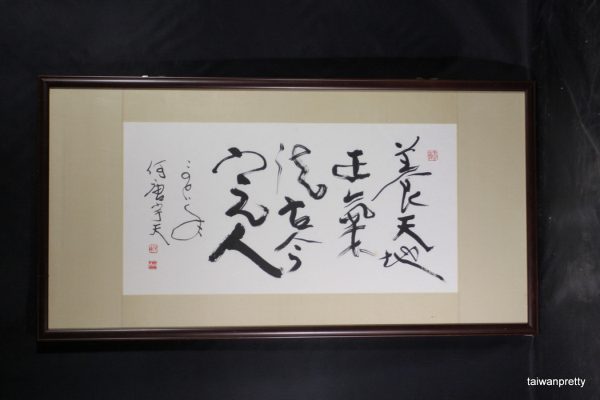 養天地
正氣
法古今
完人
何唐宇天
taiwanpretty